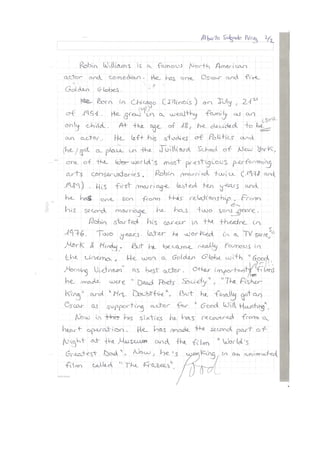 Alberto Salgado 1/2
Robin Williams is a famous North American
actor and comedian. He has one Oscar and five
Golden Globes.
Born in Chicago (Illinois) on July, 21st
of 1951. He grew up in a wealthy family as an
only child. At the age of 18, he decided to be
an actor. He left his studies of Politics and
he got a place in the Juilliard School of New York,
one of the world's most prestigious performing
arts conservatories. Robin married twice (1978 and
1989). His first marriage lasted ten years and
he has one son from this relationship. From
his second marriage, he has two sons more.
Robin started his career in the theatre in
1976. Two years later he worked in a TV serie,
Mork & Mindy. But he became really famous in
the cinema. He won a Golden Globe with "Good
Morning Vietnam" as best actor. Other important films
he made were "Dead Poets Society", "The Fisher
King" and "Mrs. Doubtfire". But he finally got an
Oscar as supporting actor for "Good Will Hunting".
Now in his sixties he has recovered from a
heart operation. He has made the second part of
Night at the Museum and the film "World's
Greatest Dad". Now, he's working in an animated
film called "The Krazees".